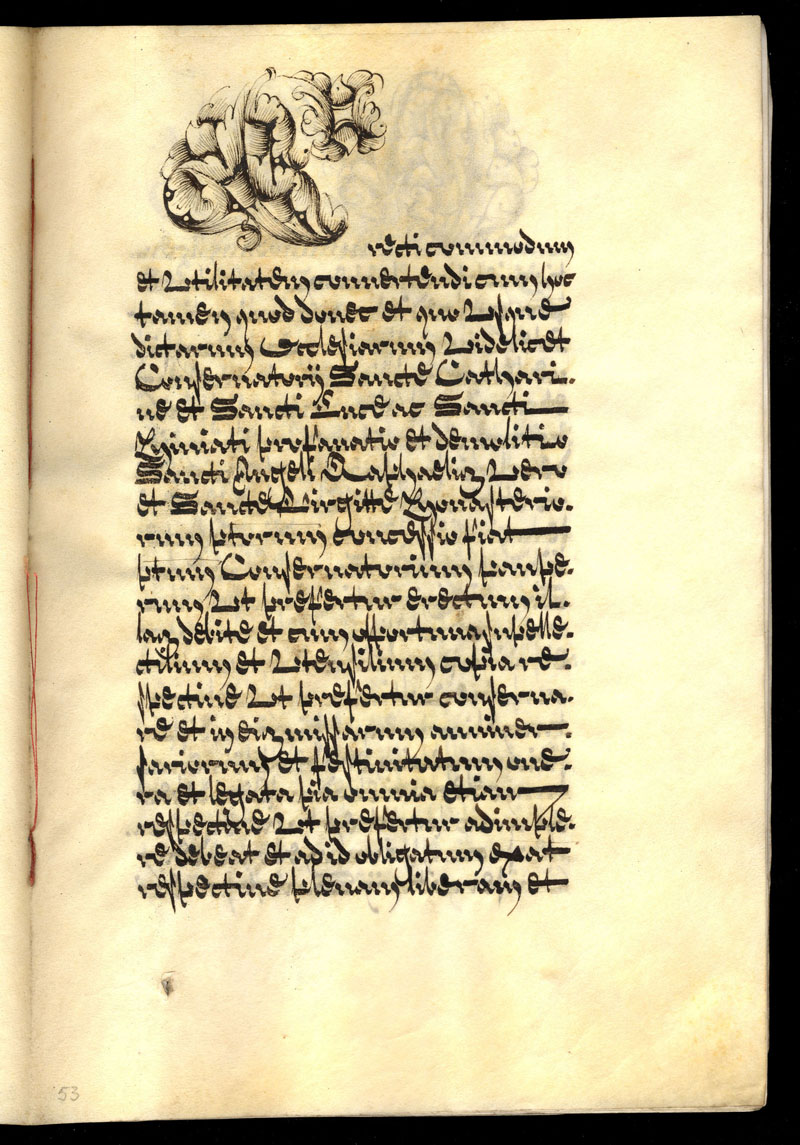 Erecti commodum
et Utilitatem convertendi cum hoc
tamen quod donec et quo Usque
dictarum Ecclesiarum Videlicet
Conservatorij Sancte Cathari-
ne et Sancti Luce ac Sancti
Miniati profanatio et demolitio
Sancti Angeli Raphaelis Vero
et Sancte Birgitte Monasterio-
rum ptorum concessio fiat
ptum Conservatorium paupe-
rum Ut prefertur erectum il-
las debite et cum opportuna supelle-
ctilium et Utensilium copia re-
spective Ut prefertur conserva-
re et in eis missarum anniver-
sariorum et festivitatum one-
ra et legata pia omnia etiam
respective Ut prefertur adimple-
re debeat et ad id obligatum exat
respective plenam liberam et
53